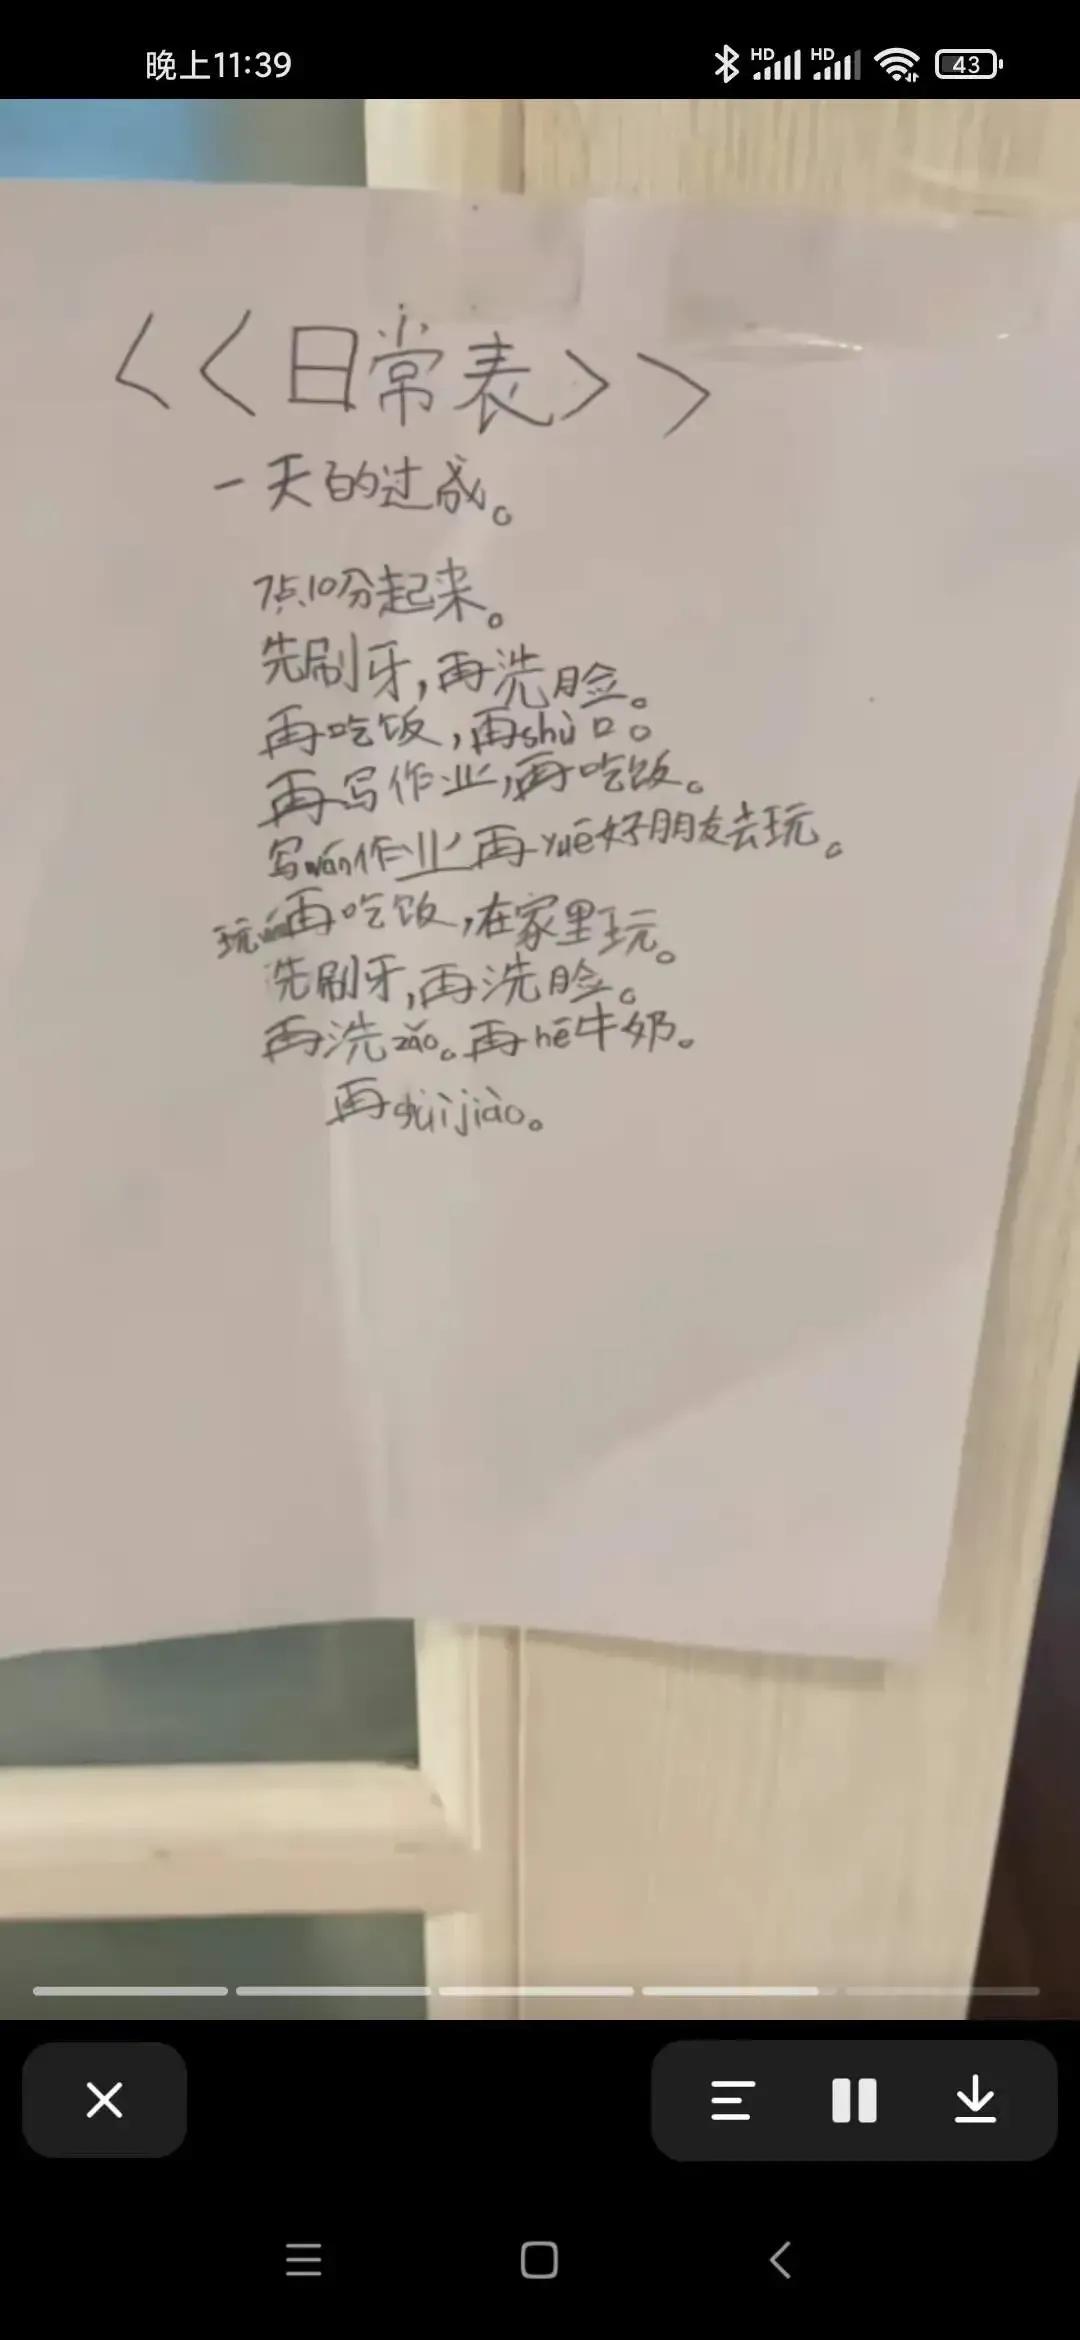 晚上11:39
HD HD 43
<<日常表>>
一天的过成。
7点10分起来。
先刷牙,再洗脸。
再吃饭,再shù口。
再写作业,再吃饭。
写wán作业再yuē好朋友去玩。
玩wán再吃饭,在家里玩。
先刷牙,再洗脸。
再洗zǎo。再hē牛奶。
再shuìjiào。